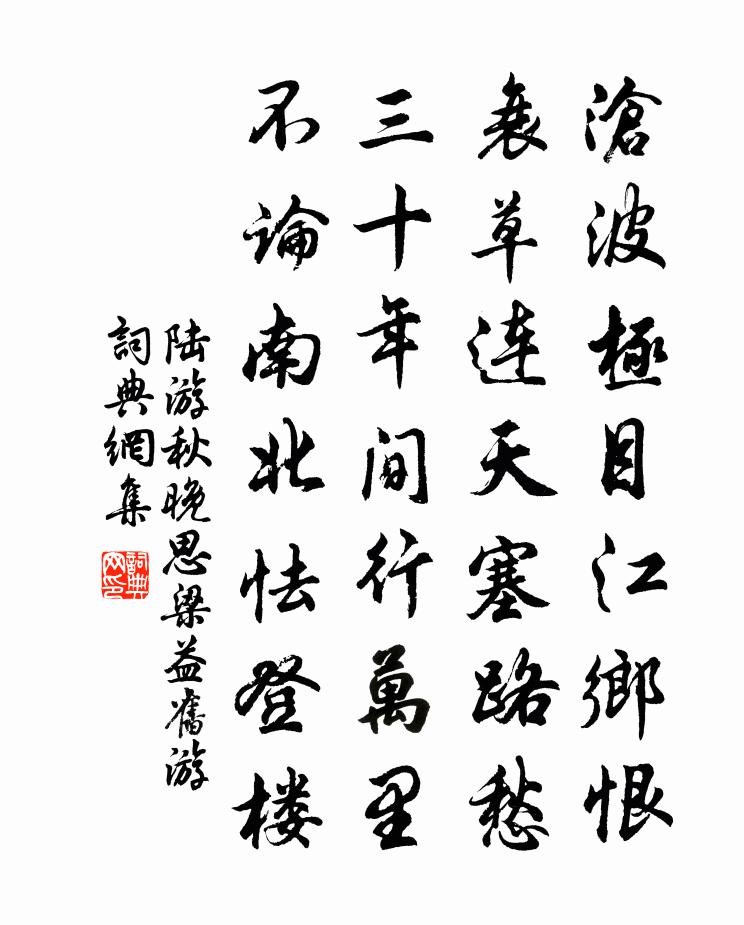 滄波極目江鄉恨
衰草连天塞路愁
三十年间行萬里
不論南北怯登楼
陆游秋晚思梁益舊游
詞典網集
詞典网印